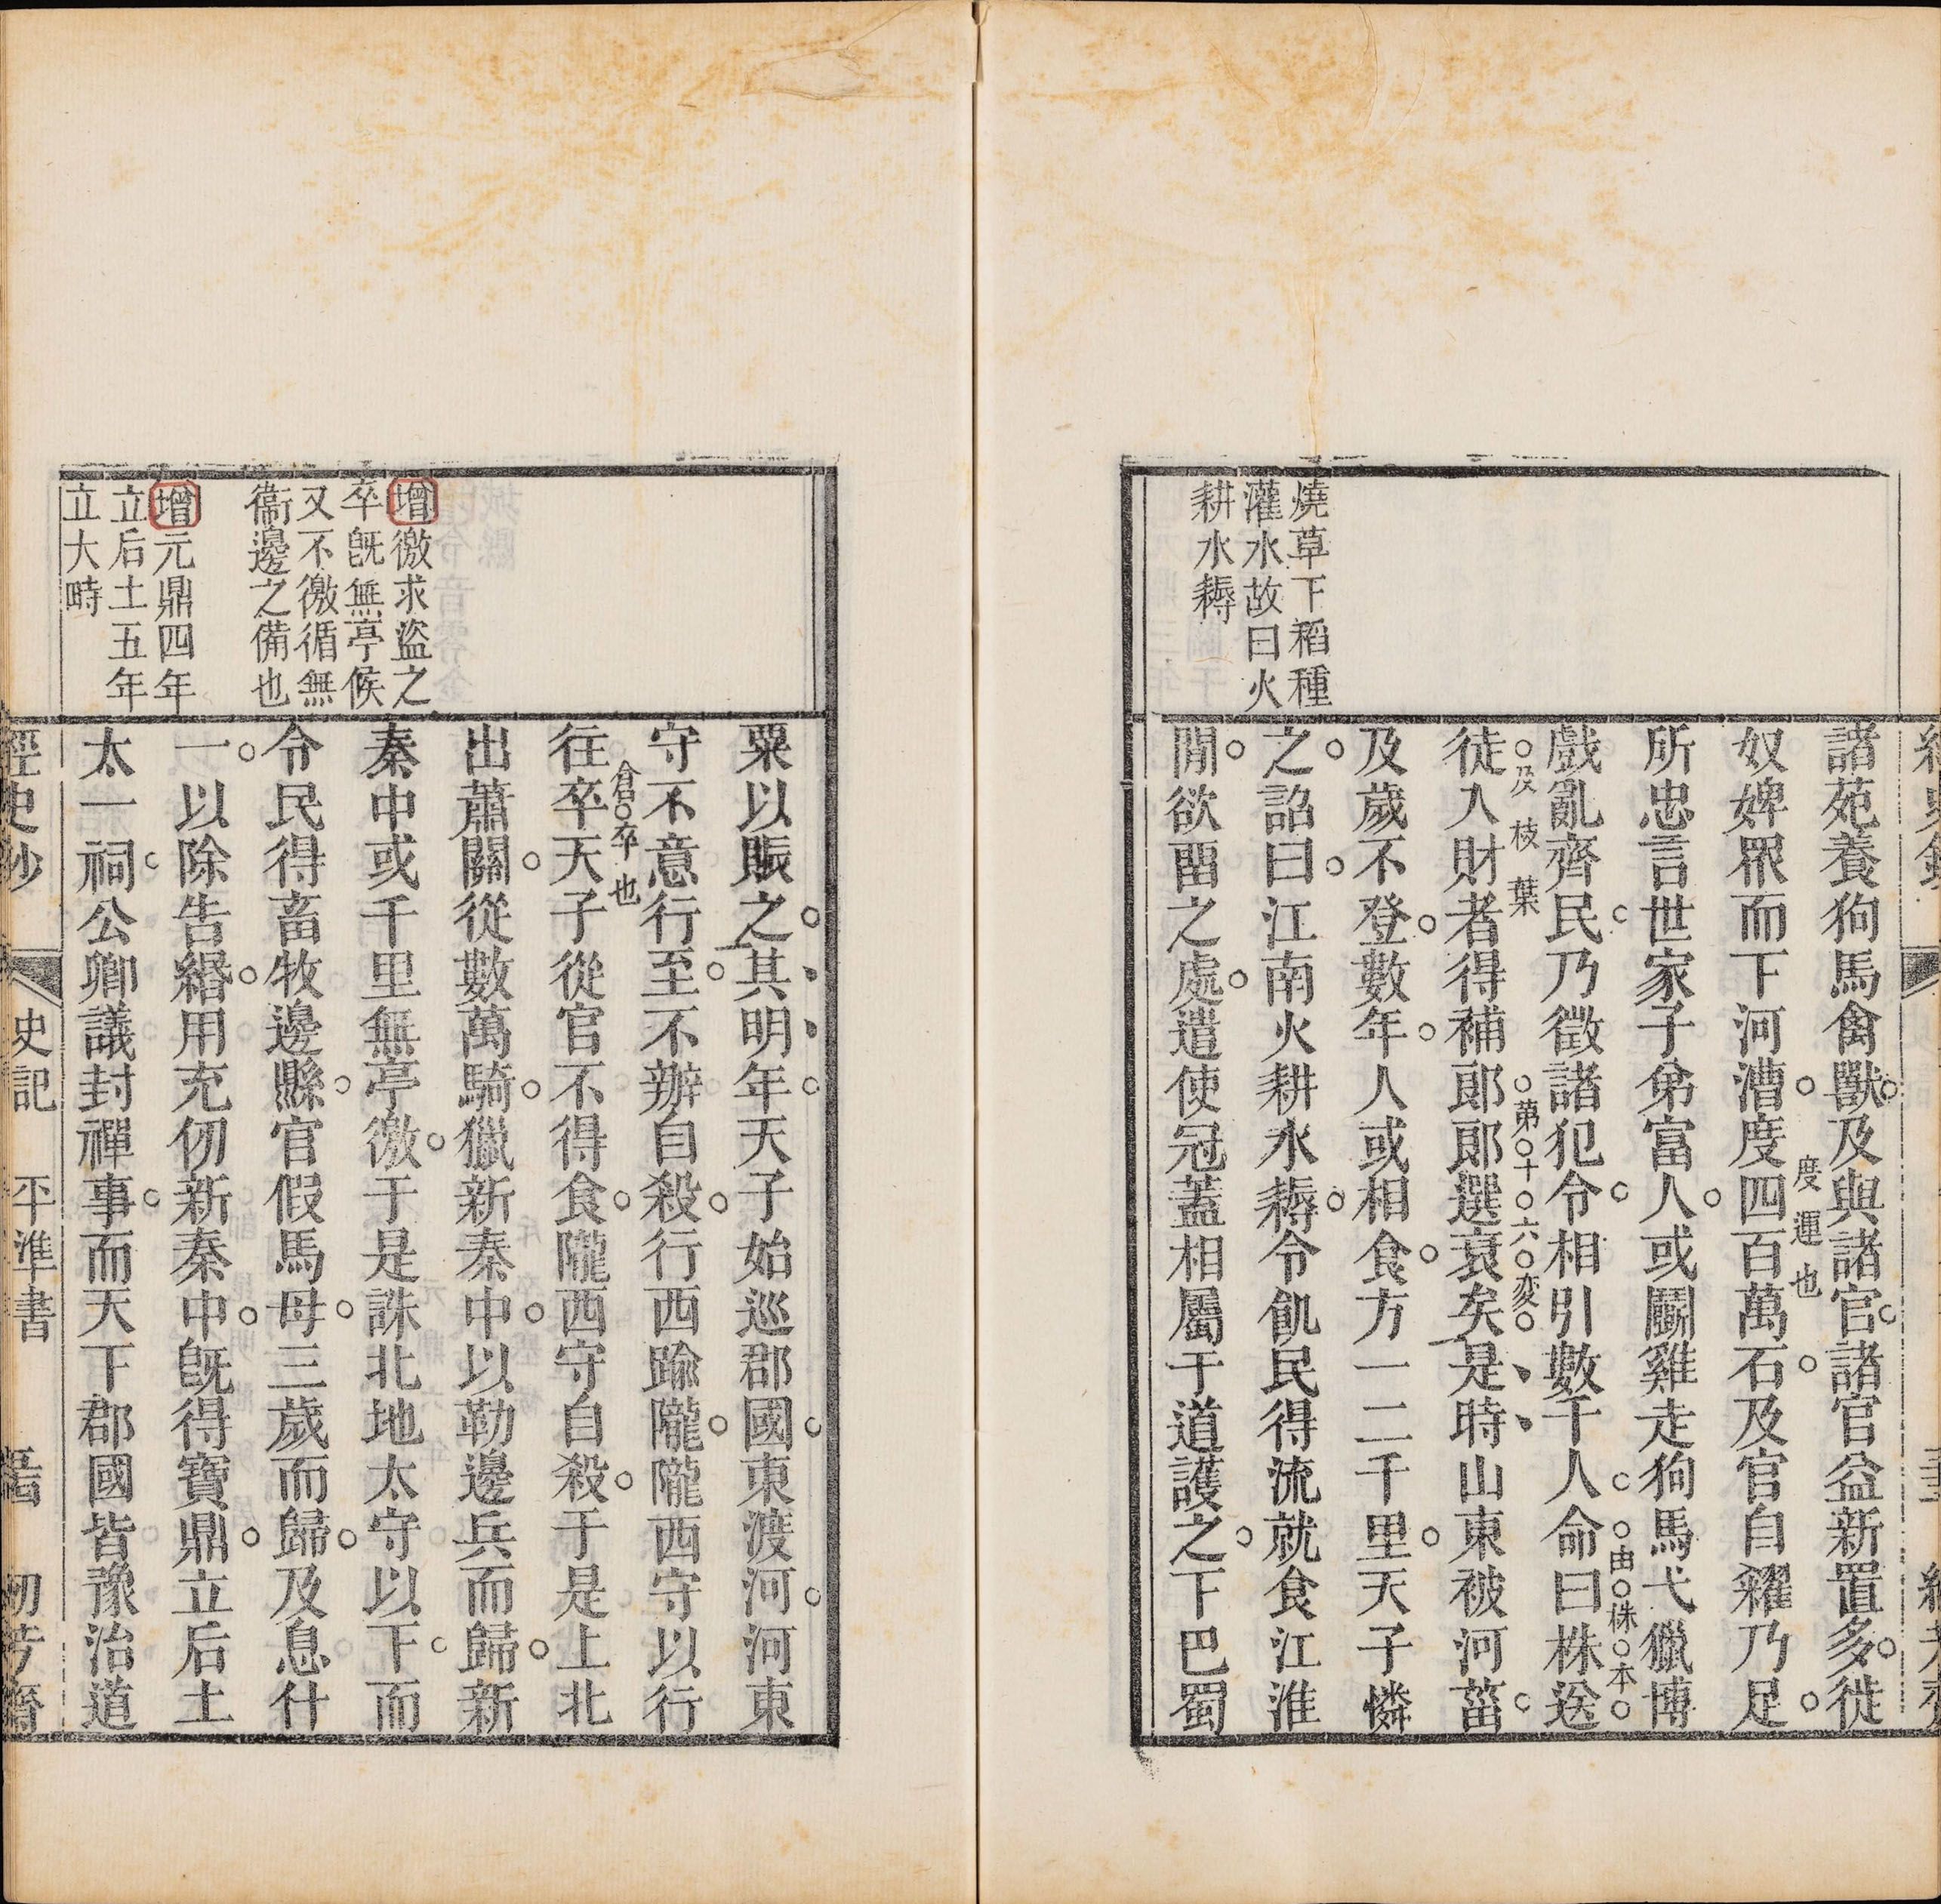 諸苑養狗馬禽獸及與諸官諸官益新置多徙
奴婢眾而下河漕度四百萬石及官自糴乃足
度運也
所忠言世家子弟富人或鬭雞走狗馬弋獵博
戲亂齊民乃徵諸犯令相引數千人命曰株送
由株本
徒入財者得補郎郎選衰矣是時山東被河菑
及枝葉
第十六変
及歲不登數年人或相食方一二千里天子憐
之詔曰江南火耕水耨令飢民得流就食江淮
閒欲畱之處遣使冠蓋相屬于道護之下巴蜀
燒草下稻種
灌水故曰火
耕水耨
粟以賑之其明年天子始巡郡國東渡河河東
守不意行至不辦自殺行西踰隴隴西守以行
往卒天子從官不得食隴西守自殺于是上北
倉卒也
出蕭關從數萬騎獵新秦中以勒邊兵而歸新
秦中或千里無亭徼于是誅北地太守以下而
令民得畜牧邊縣官假馬母三歲而歸及息什
一以除告緡用充仞新秦中旣得寶鼎立后土
太一祠公卿議封禪事而天下郡國皆豫治道
增徼求盜之
卒旣無亭候
又不徼循無
衞邊之備也
增元鼎四年
立后土五年
立大畤
史記 平準書